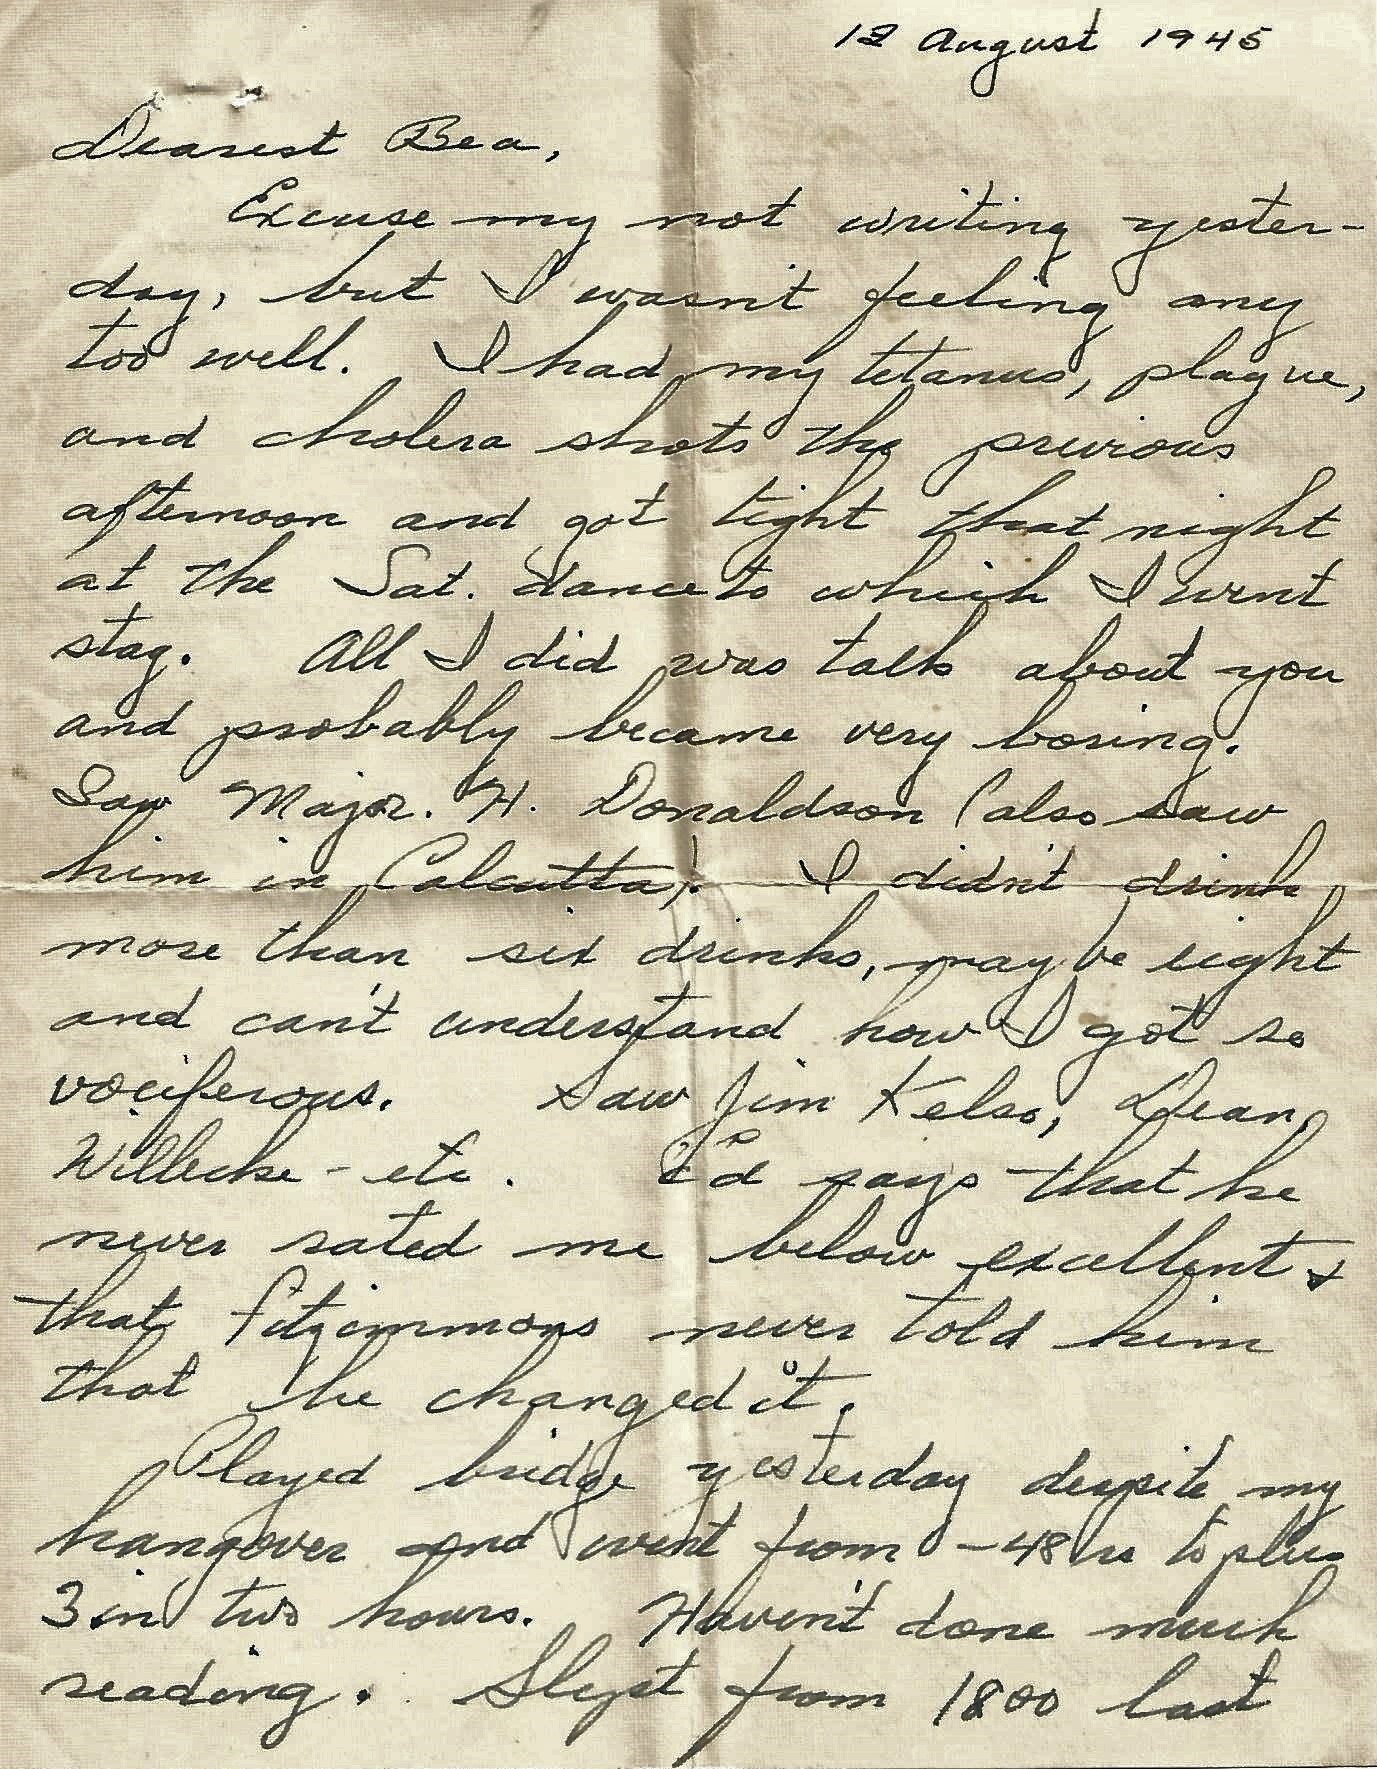 12 August 1945
Dearest Bea,
Excuse my not writing yester-
day, but I wasn't feeling any
too well. I had my tetanus, plague,
and cholera shots the previous
afternoon and got tight that night
at the Sat. dance to which I went
stag. All I did was talk about you
and probably became very boring.
Saw Major. H. Donaldson (also saw
him in Calcutta). I didn't drink
more than six drinks, maybe eight
and can't understand how I got so
vociferous. Saw Jim Kelso, Dean,
Willecke - etc. Ed says that he
never rated me below excellent &
that Fitzimmons never told him
that he changed it.
Played bridge yesterday despite my
hangover and went from -48 to plus
3 in two hours. Haven't done much
reading. Slept from 1800 last